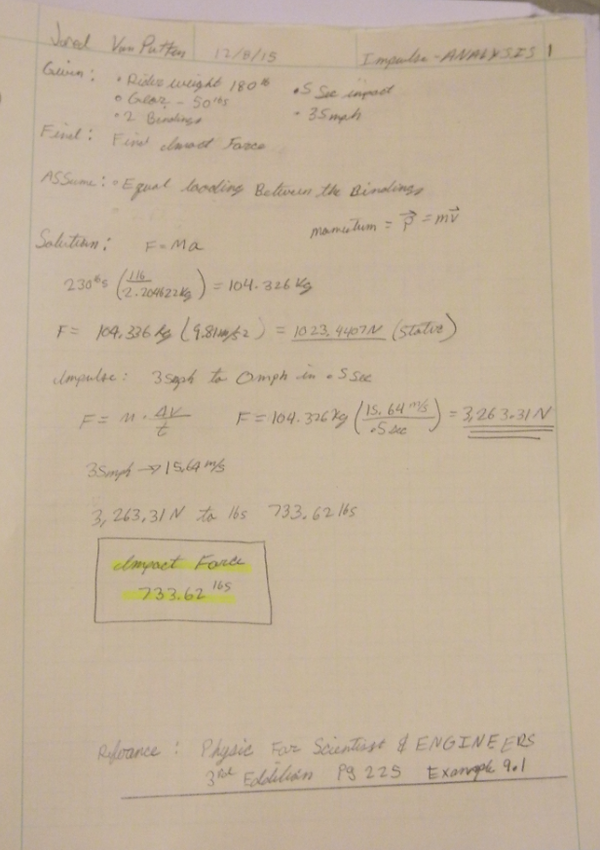 Jared Van Putten 12/8/15 Impulse-ANALYSIS 1
Given: • Rider weight 180 lb • .5 Sec impact
• Gear - 50 lbs • 35mph
• 2 Bindings
Find: Find Impact Force
ASSume: • Equal loading Between the Bindings
momentum = p⃗ = mv⃗
Solution: F=Ma
230 lbs (1 lb / 2.204622 kg) = 104.326 kg
F = 104.326 kg (9.81 m/s2) = 1023.4407N (static)
Impulse: 35mph to 0mph in .5 Sec
F = m · ΔV/t F = 104.326 kg (15.64 m/s / .5 sec) = 3,263.31 N
35mph → 15.64 m/s
3,263.31 N to lbs 733.62 lbs
Impact Force
733.62 lbs
Refrance: Physic For Scientist & ENGINEERS
3rd Eddition Pg 225 Example 9.1